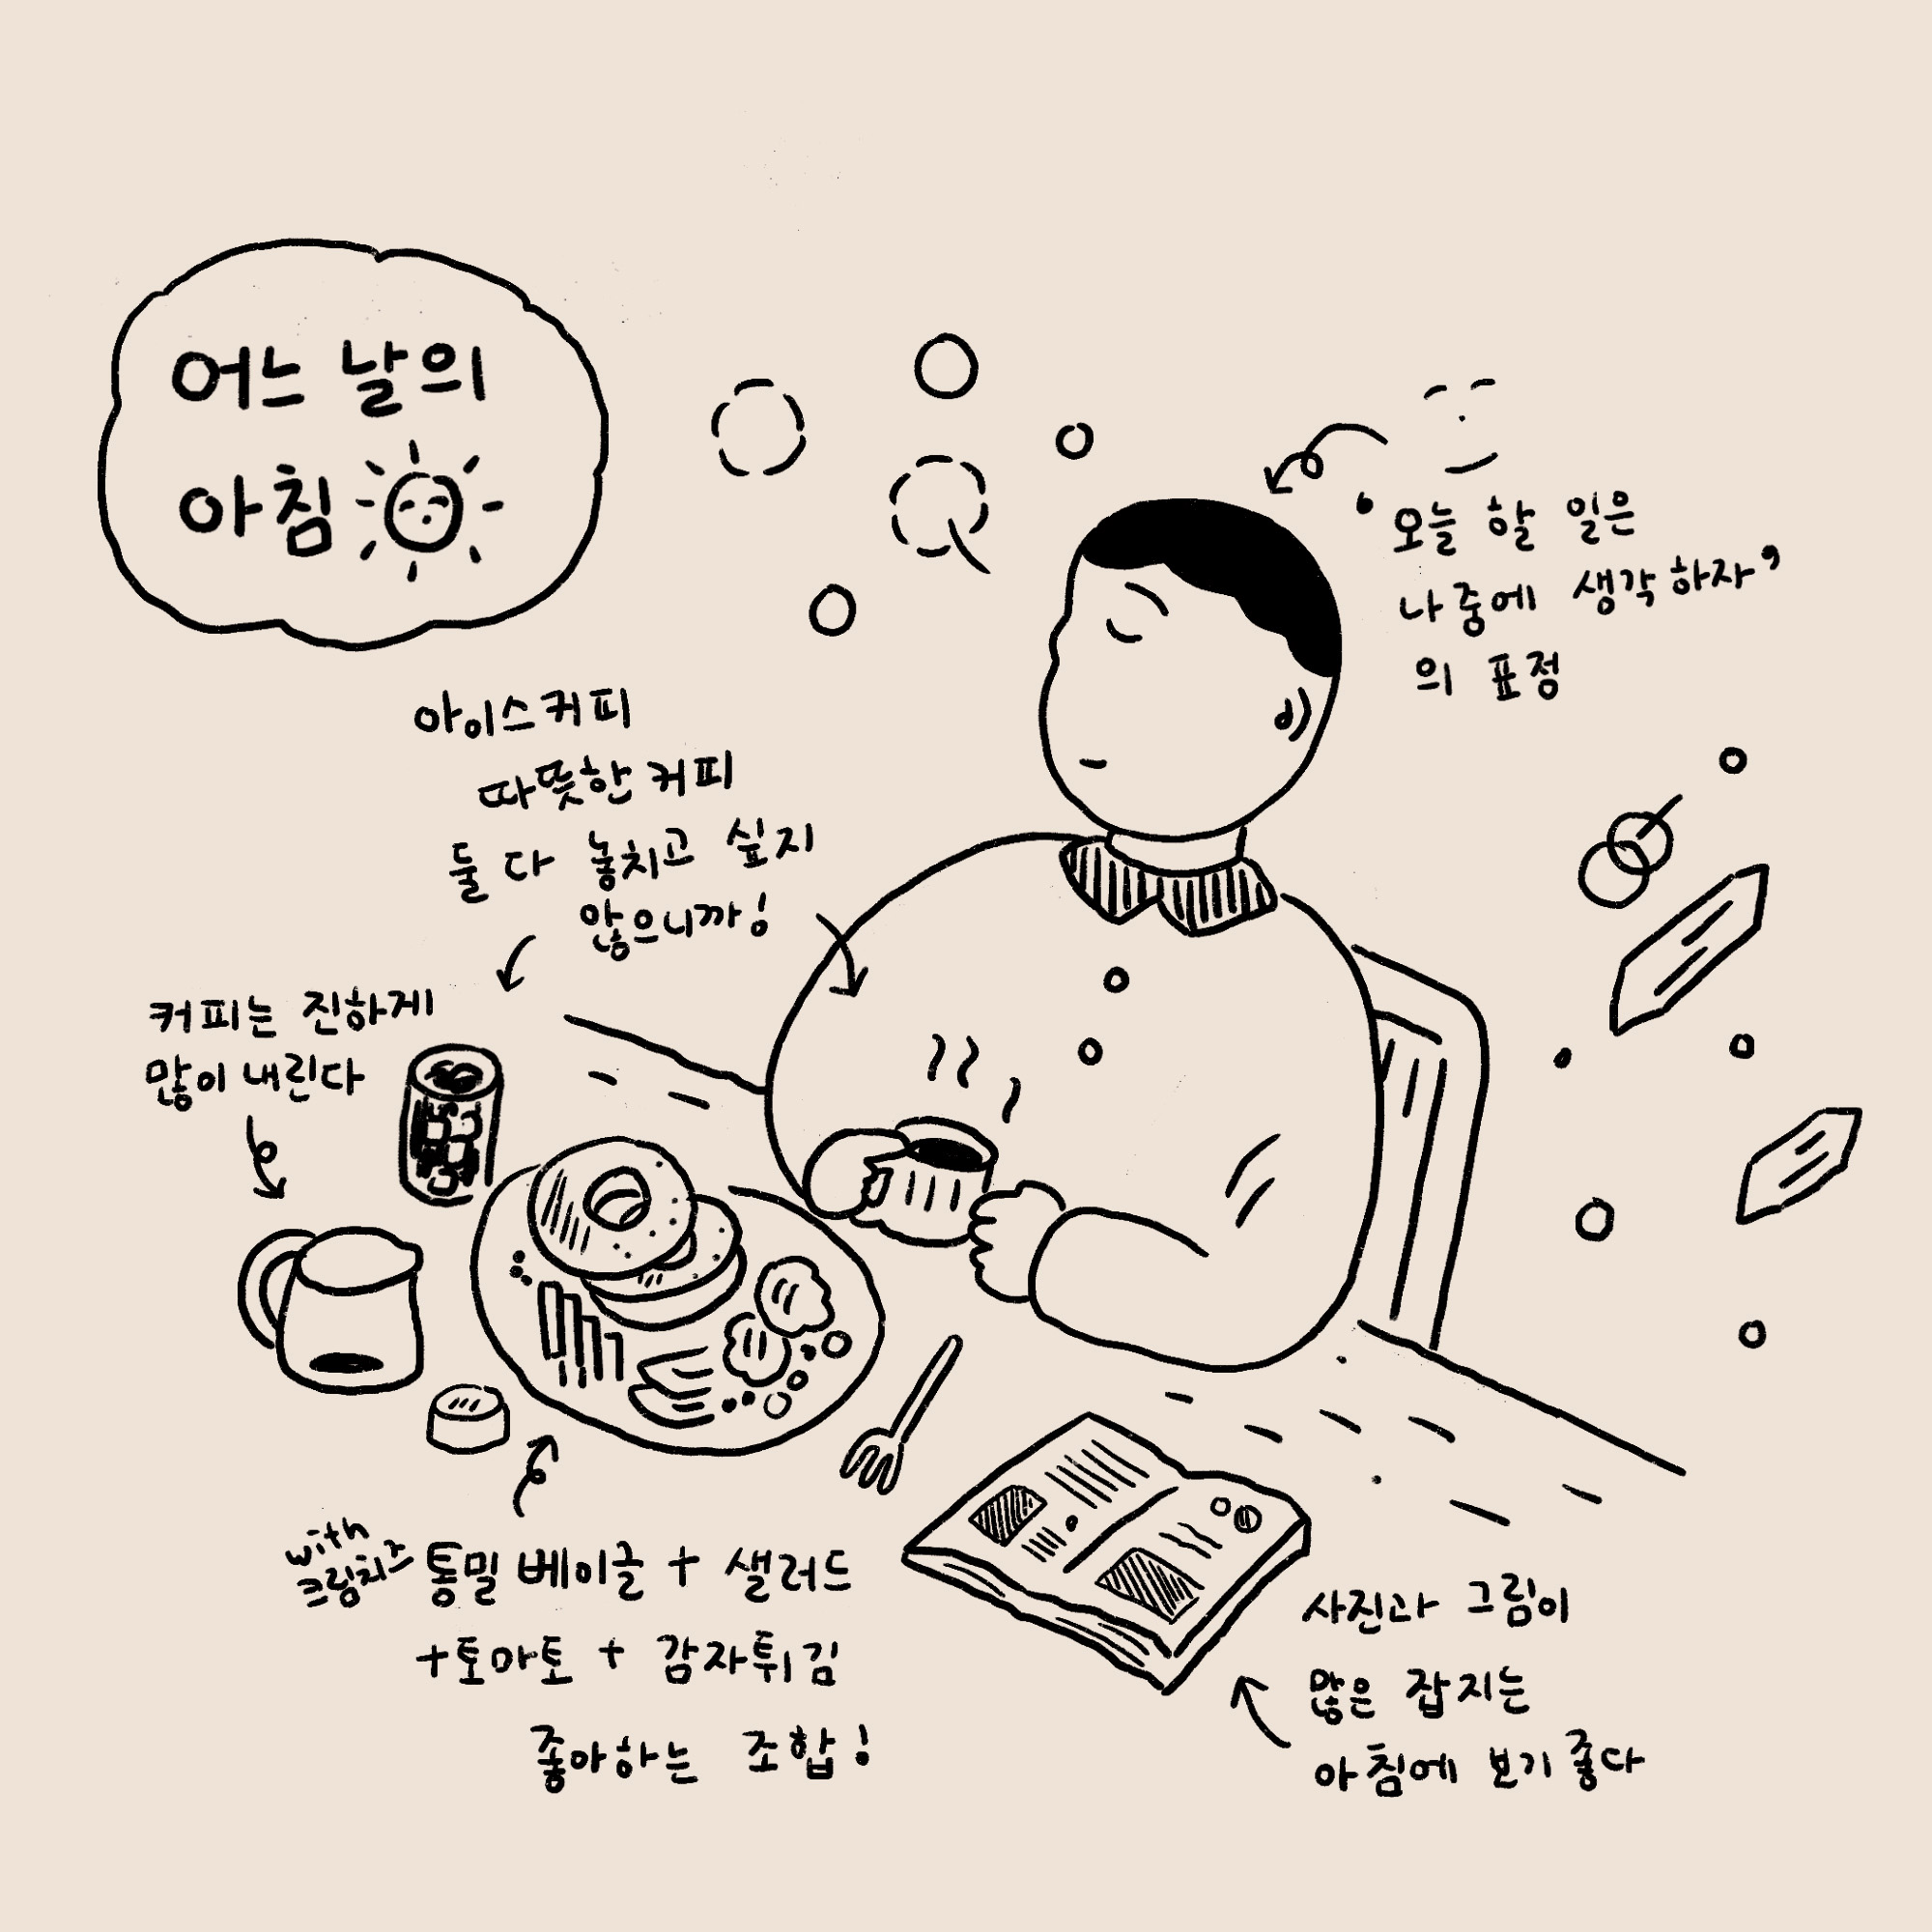 어느 날의
아침
'오늘 할 일은
나중에 생각하자'
의 표정
아이스커피
따뜻한 커피
둘 다 놓치고 싶지
않으니까!
커피는 진하게
많이 내린다
with
크림치즈
통밀 베이글 + 샐러드
+토마토 + 감자튀김
좋아하는 조합!
사진과 그림이
많은 잡지는
아침에 보기 좋다